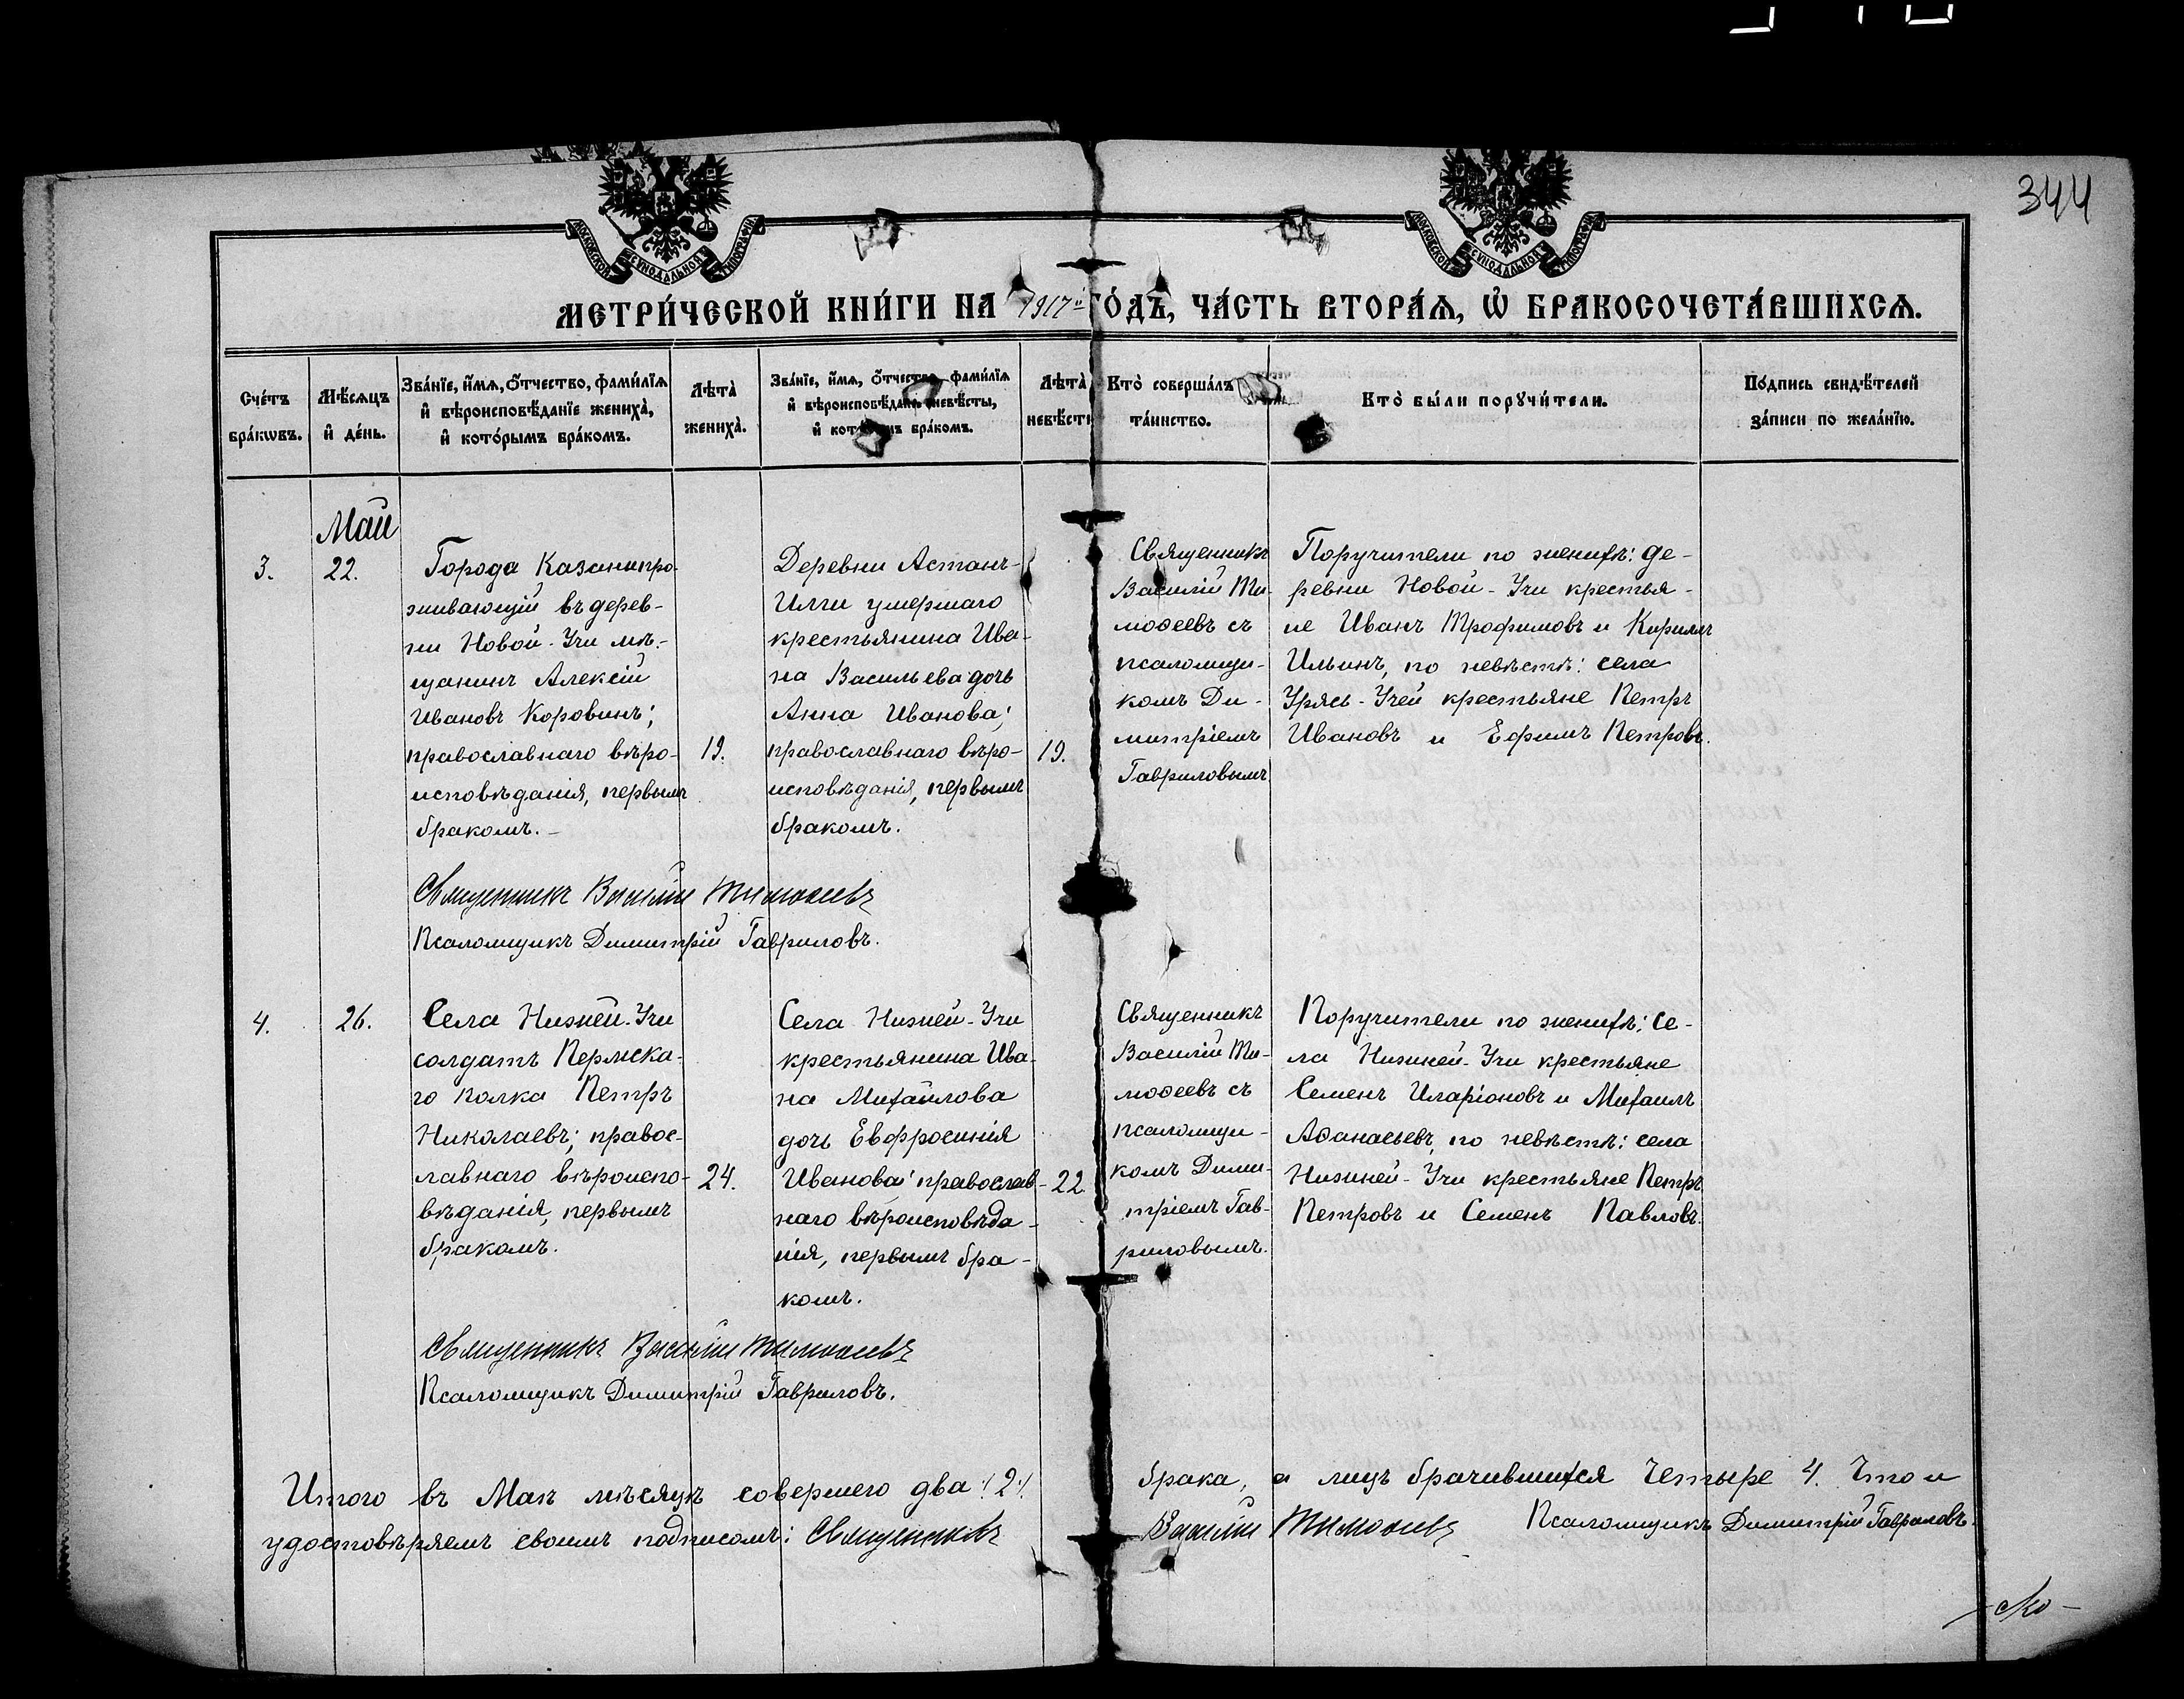 344
МОСКОВСКОЙ СѴНОДАЛЬНОЙ ТИПОГРАФІИ
МОСКОВСКОЙ СѴНОДАЛЬНОЙ ТИПОГРАФІИ
МЕТРИ́ЧЕСКОЙ КНИ́ГИ НА 1917й ГО́ДЪ, ЧА́СТЬ ВТОРА́Ѧ, Ѽ БРАКОСОЧЕТА́ВШИХСѦ.
Сче́тъ
бра́кѡвъ.
Мѣ́сѧцъ
и҆ де́нь.
Зва́нїе, и҆́мѧ, о҆́тчество, фами́лїѧ
и҆ вѣроисповѣ́данїе жениха̀,
и҆ кото́рымъ бра́комъ.
Лѣ́та̀
жениха̀.
Зва́нїе, и҆́мѧ, о҆́тчество, фами́лїѧ
и҆ вѣроисповѣ́данїе невѣ́сты,
и҆ кото́рымъ бра́комъ.
Лѣ́та̀
невѣ́сты
Кто̀ соверша́лъ
та́инство.
Кто̀ бы́ли порꙋчи́тели.
По́дпись свидѣ́телей
за́писи по жела́нїю.
Май
3.
22.
Города Казани про-
живающій въ дерев-
ни Новой-Учи мѣ-
щанинъ Алексій
Ивановъ Коровинъ;
православнаго вѣро-
исповѣданія, первымъ
бракомъ.-
19.
Деревни Астанъ-
Илги умершаго
крестьянина Ива-
на Васильева дочь
Анна Иванова;
православнаго вѣро-
исповѣданія, первымъ
бракомъ.
19.
Священникъ
Василій Ти-
моѳеевъ съ
псаломщи-
комъ Ди-
митріемъ
Гавриловымъ
Поручители по женихѣ: де-
ревни Новой-Учи крестья-
не Иванъ Трофимовъ и Кириллъ
Ильинъ, по невѣстѣ: села
Урясь-Учей крестьяне Петръ
Ивановъ и Ефимъ Петровъ.
Священникъ Василій Тимоѳеевъ
Псаломщикъ Димитрій Гавриловъ.
4.
26.
Села Нижней-Учи
солдатъ Пермска-
го полка Петръ
Николаевъ; правос-
лавнаго вѣроиспо-
вѣданія, первымъ
бракомъ.
24.
Села Нижней-Учи
крестьянина Ива-
на Михайлова
дочь Евфросинія
Иванова; православ-
наго вѣроисповѣда-
нія, первымъ бра-
комъ.
22.
Священникъ
Василій Ти-
моѳеевъ съ
псаломщи-
комъ Дими-
тріемъ Гав-
риловымъ.
Поручители по женихѣ: се-
ла Нижней-Учи крестьяне
Семенъ Иларіоновъ и Михаилъ
Аѳанасьевъ, по невѣстѣ: села
Нижней-Учи крестьяне Петръ
Петровъ и Семенъ Павловъ.
Священникъ Василій Тимоѳеевъ
Псаломщикъ Димитрій Гавриловъ.
Итого въ Маѣ мѣсяцѣ совершено два /2/. брака, а лицъ брачившихся четыре 4. Что и
удостовѣряемъ своимъ подписомъ: Священникъ Василій Тимоѳеевъ Псаломщикъ Димитрій Гавриловъ.